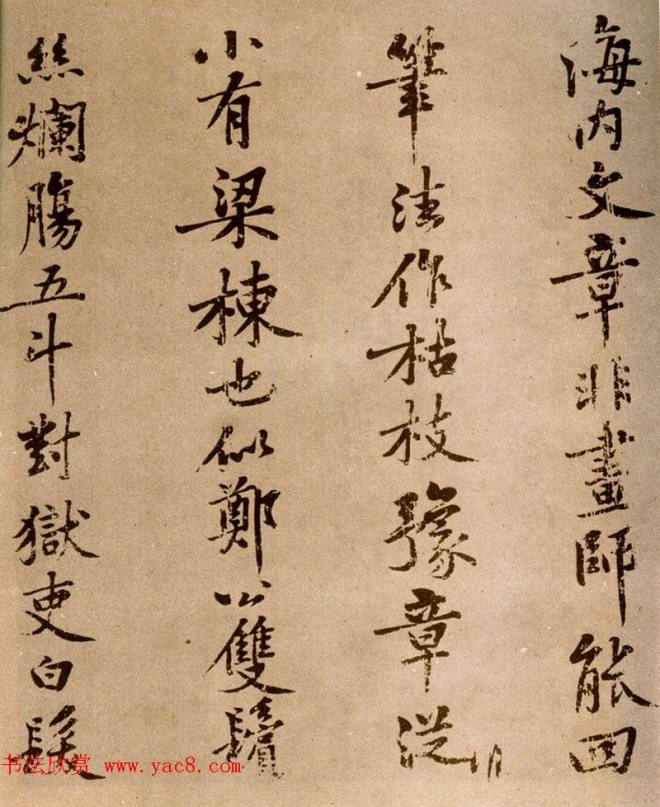 海内文章非畫師能回
筆法作枯枝豫章従
小有梁棟也似鄭公雙鬢
絲爛腸五斗對獄吏白髮
书法欣赏 www.yac8.com